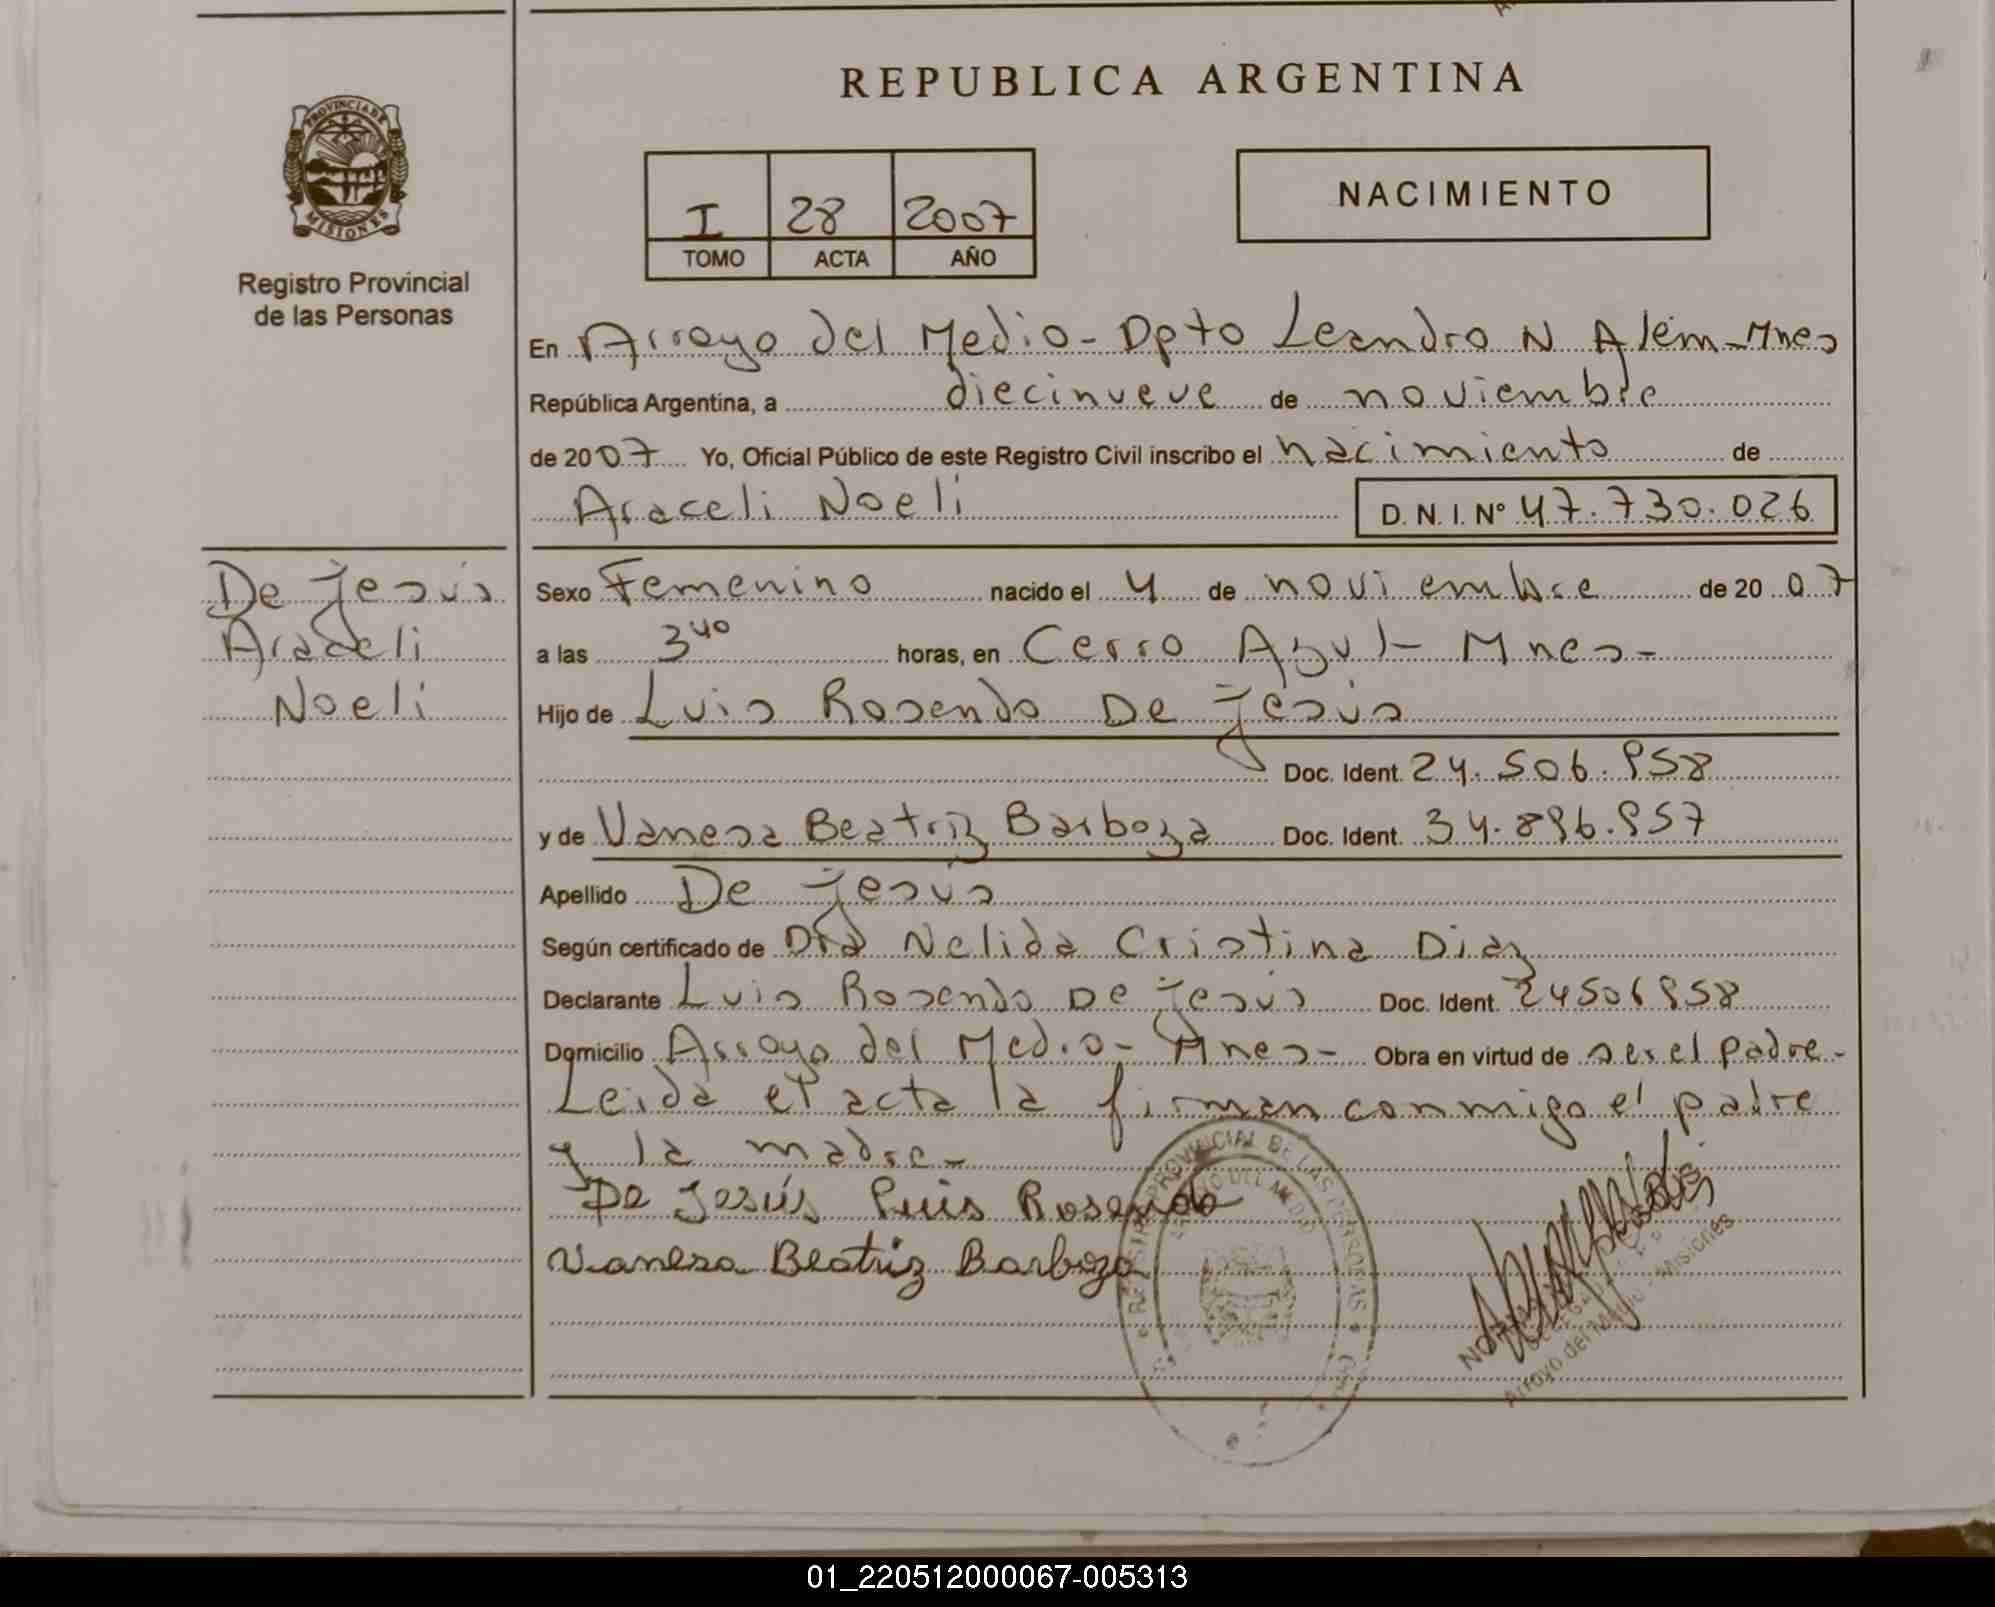 REPUBLICA ARGENTINA
PROVINCIA DE
MISIONES
Registro Provincial
de las Personas
I 28 2007
TOMO ACTA AÑO
NACIMIENTO
En Arroyo del Medio - Dpto Leandro N Alem - Mnes
República Argentina, a diecinueve de noviembre
de 2007 Yo, Oficial Público de este Registro Civil inscribo el nacimiento de
Araceli Noeli D.N.I. N° 47.730.026
De Jesús
Araceli
Noeli
Sexo Femenino nacido el 4 de noviembre de 2007
a las 3 40 horas, en Cerro Azul - Mnes -
Hijo de Luis Rosendo De Jesús
Doc. Ident. 24.506.958
y de Vanesa Beatriz Barboza Doc. Ident. 34.896.957
Apellido De Jesús
Según certificado de Dra Nelida Cristina Diaz
Declarante Luis Rosendo De Jesús Doc. Ident. 24506958
Domicilio Arroyo del Medio - Mnes - Obra en virtud de ser el padre -
Leida el acta la firman conmigo el padre
y la madre -
De Jesús Luis Rosendo
Vanesa Beatriz Barboza
REGISTRO PROVINCIAL DE LAS PERSONAS
ARROYO DEL MEDIO
Arroyo del Medio - Misiones
01_220512000067-005313